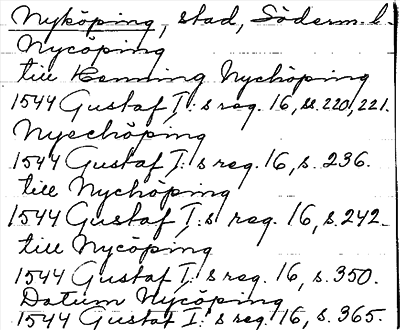 Nyköping, stad, Söderm. l.
Nycöping
till Konning Nychöping
1544 Gustaf I:s reg. 16, ss. 220, 221.
Nyechöping
1544 Gustaf I:s reg. 16, s. 236.
till Nychöping
1544 Gustaf I:s reg. 16, s. 242.
till Nycöping
1544 Gustaf I:s reg. 16, s. 350.
Datum Nycöping
1544 Gustaf I:s reg. 16, s. 365.